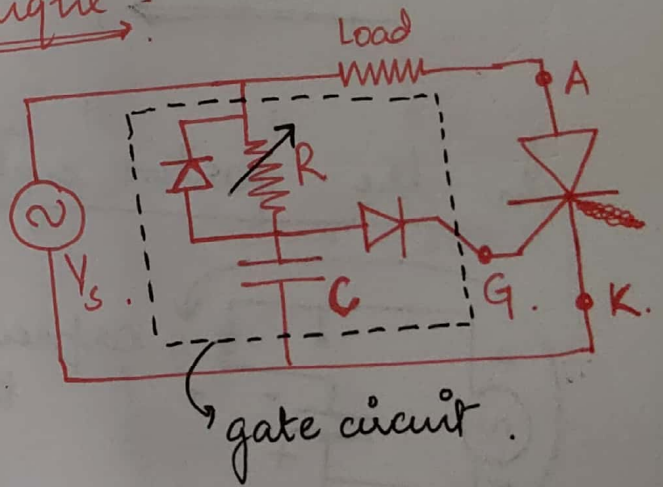 Load
A
R
Vs.
C
G.
K.
gate circuit.